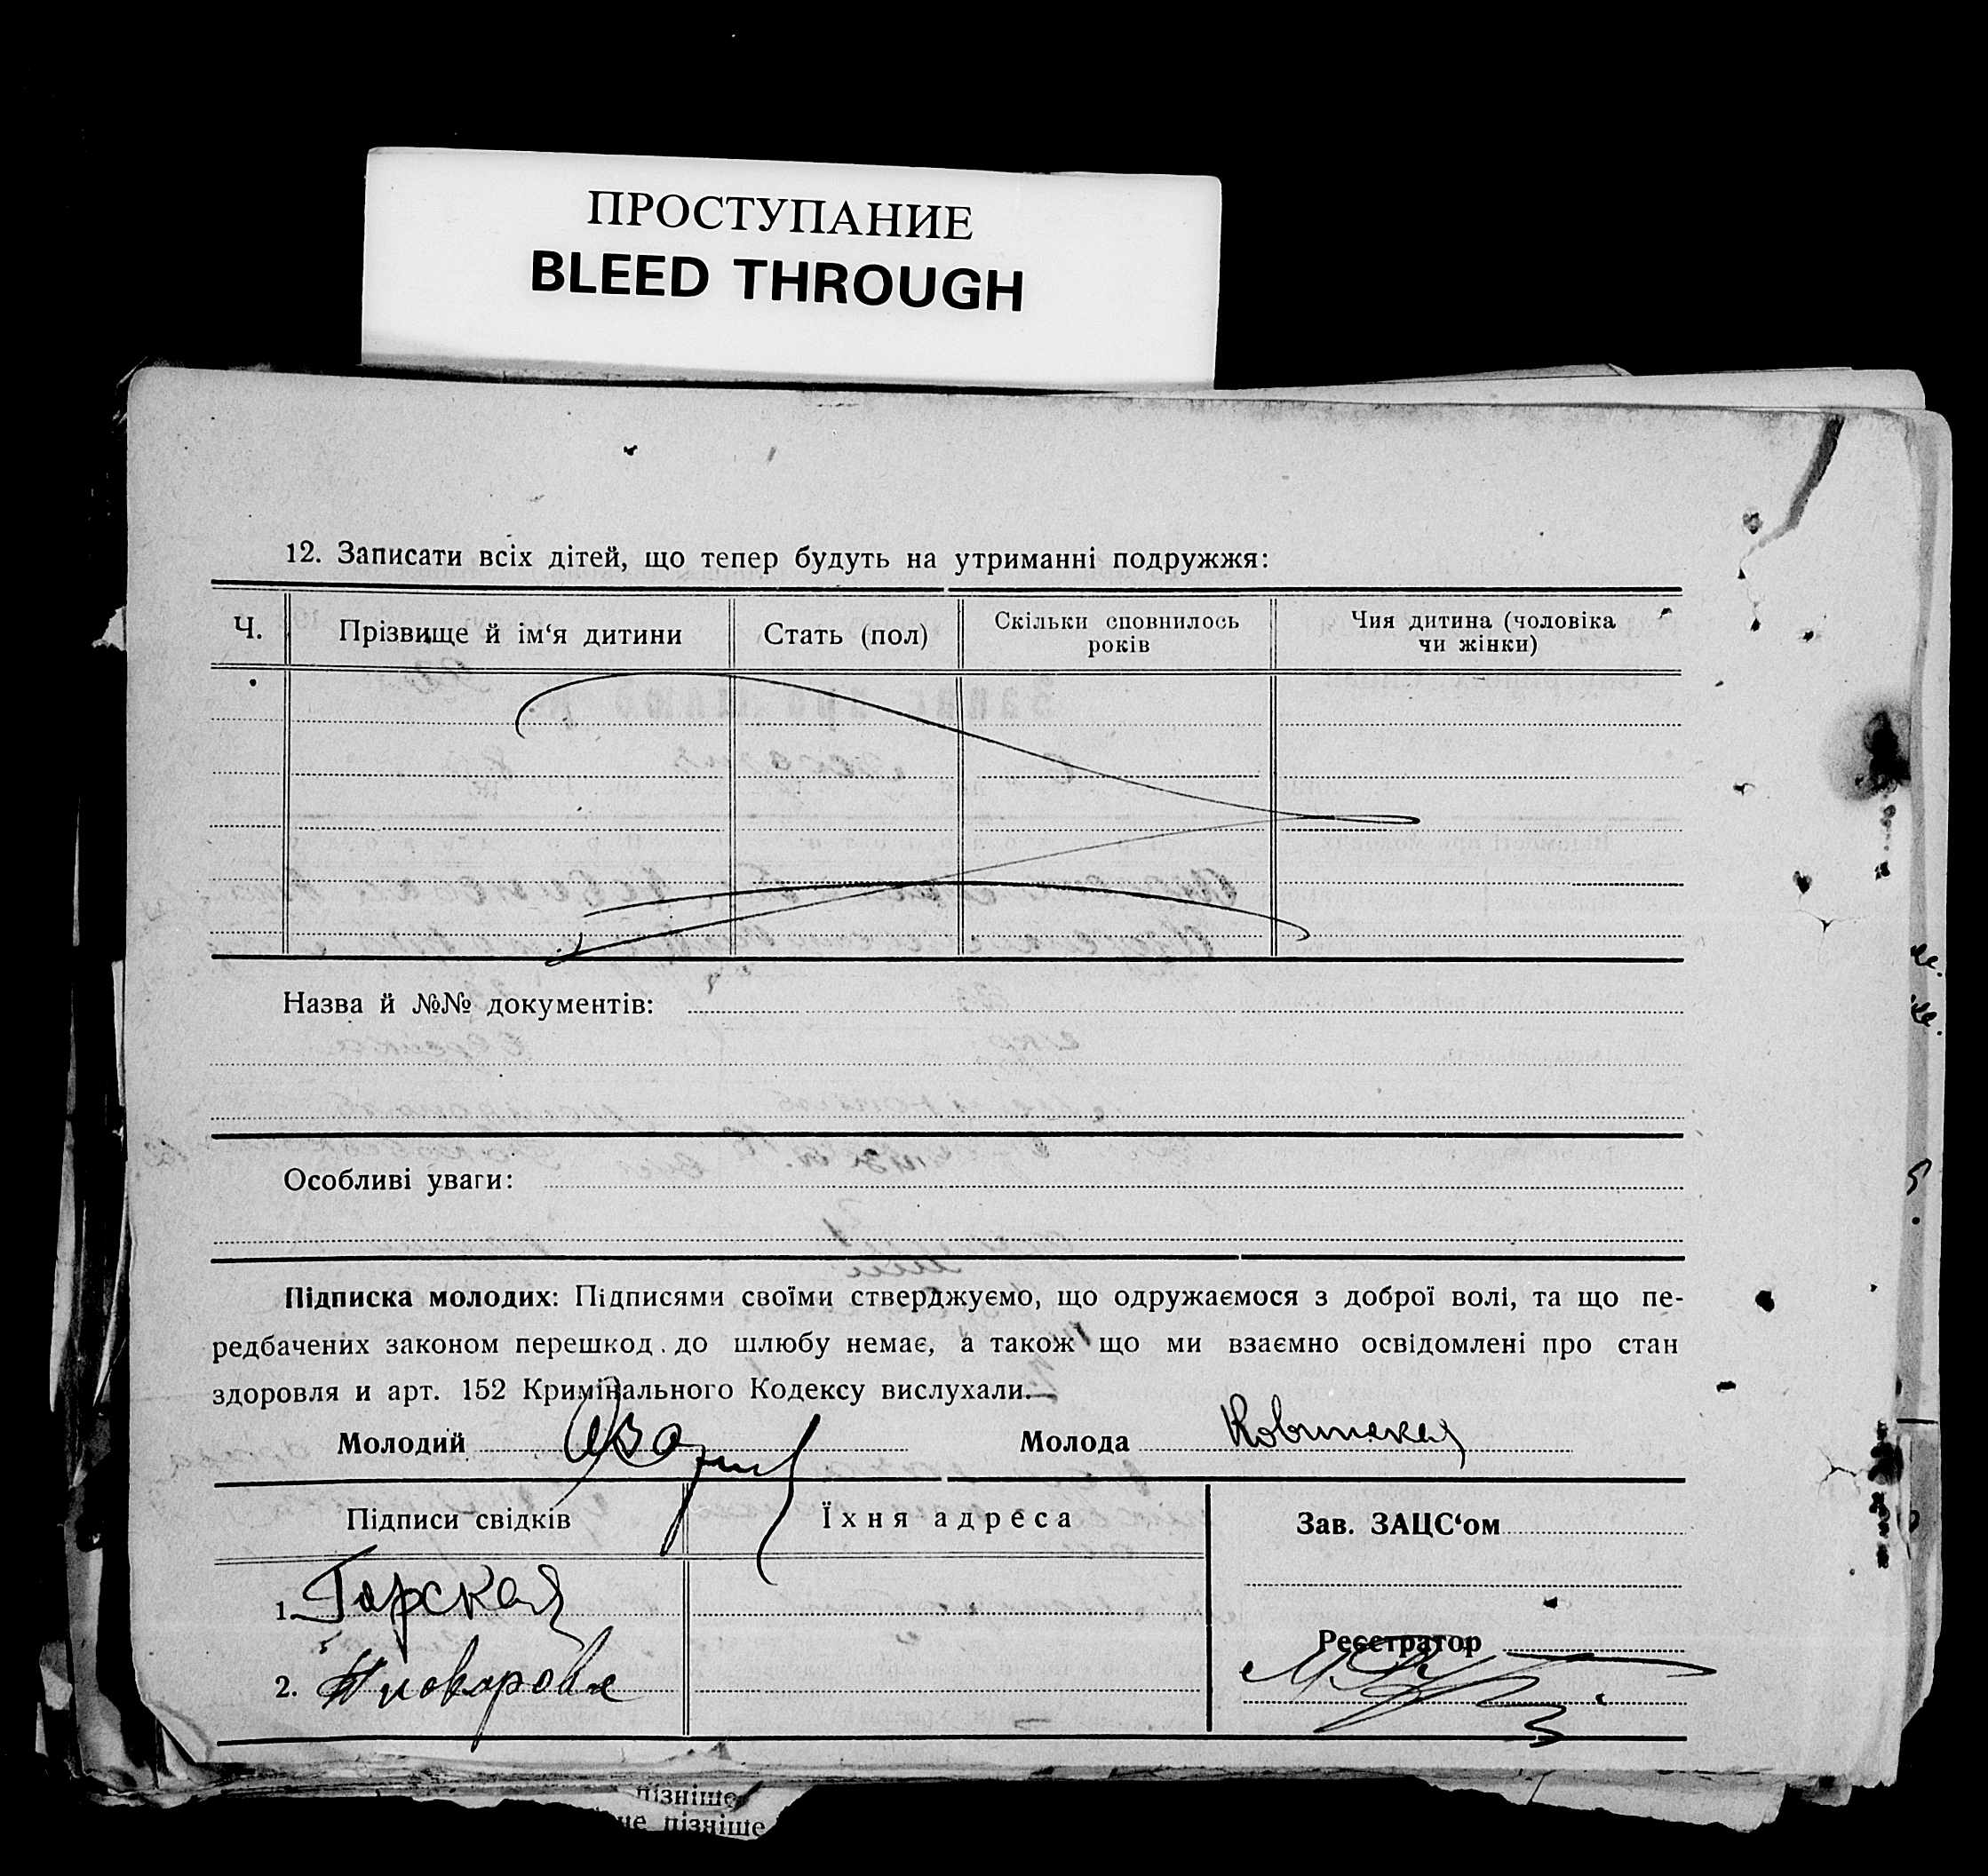 ПРОСТУПАНИЕ
BLEED THROUGH
12. Записати всіх дітей, що тепер будуть на утриманні подружжя:
Ч.
Прізвище й ім‘я дитини
Стать (пол)
Скільки сповнилось
років
Чия дитина (чоловіка
чи жінки)
Назва й №№ документів:
Особливі уваги:
Підписка молодих: Підписями своїми стверджуємо, що одружаємося з доброї волі, та що пе-
редбачених законом перешкод до шлюбу немає, а також що ми взаємно освідомлені про стан
здоровля и арт. 152 Кримінального Кодексу вислухали.
Молодий
Молода
Підписи свідків
Їхня адреса
Зав. ЗАЦС‘ом
1. Горская
Реєстратор
2.
пізніше
не пізніше